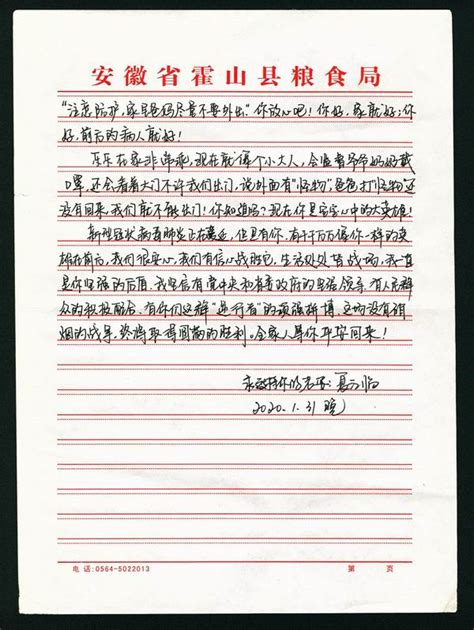 安徽省霍山县粮食局
"注意防护,家里爸妈尽量不要外出。"你放心吧!你好,家就好;你
好,前后的病人就好!
乐乐在家非常乖,现在就像个小大人,会监督爷爷奶奶戴
口罩,还会看着大门不许我们出门,说外面有"怪物",爸爸打"怪物"还
没有回来,我们就不能出门!你知道吗?现在你是宝宝心中的大英雄!
新型冠状病毒肺炎正在蔓延,但是有你,有千千万万像你一样的英
雄在前后,我们很安心,我们有信心战胜它,生活处处皆战场,我一直
是你坚强的后盾。我坚信有党中央和各高政府的坚强领导,有人民群
众的积极配合,有你们这群"逆行者"的顽强拼搏,这场没有硝
烟的战争,必将取得圆满的胜利。全家人等你平安回来!
永远支持你的老婆:夏
2020.1.31 晚
电话:0564-5022013
第 页